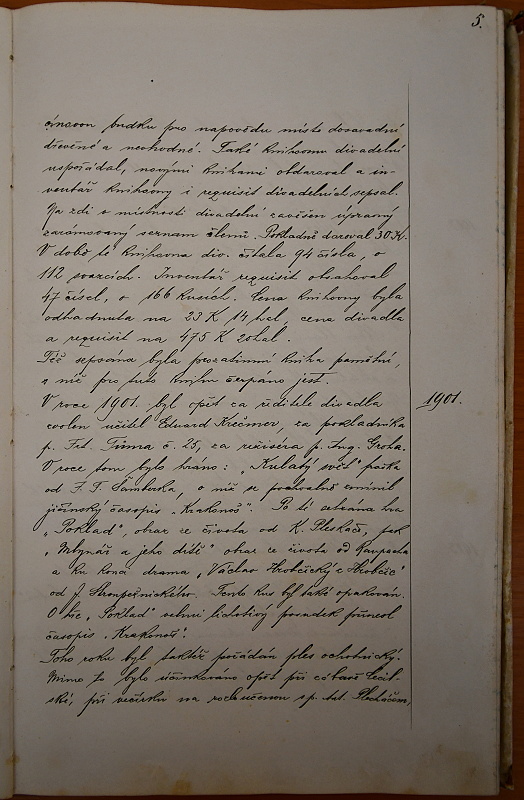 5.
budku pro napovědu místo dosavadní
dřevěné a nevhodné. Také knihovnu divadelní
uspořádal, novými knihami obdaroval a in-
ventář knihovny i requisit divadelních sepsal.
Na zdi v místnosti divadelní zavěšen úpravný
zarámovaný seznam členů. Pokladně daroval 30 K.
V době té knihovna div. čítala 94 čísla, o
112 svazcích. Inventář requisit obsahoval
47 čísel, o 166 kusích. Cena knihovny byla
odhadnuta na 23 K 14 hal, cena divadla
a requisit na 475 K 20 hal.
Též sepsána byla prozatimní kniha pamětní,
z níž pro tuto knihu čerpáno jest.
1901.
V roce 1901. byl opět za ředitele divadla
zvolen učitel Eduard Krečmer, za pokladníka
p. Frt. Tůma č. 25, za režiséra p. Aug. Groha.
V roce tom bylo hráno: „Kulatý svět" fraška
od F. F. Šamberka, o níž se pochvalně zmínil
jičínský časopis „Krakonoš". Po té sehrána hra
„Poklad", obraz ze života od K. Pleskače, pak
„Mlynář a jeho dítě" obraz ze života od Raupacha
a ku konci drama „Václav Hrobčický z Hrobčic"
od J. Stroupežnického. Tento kus byl také opakován.
O hře „Poklad" velmi lichotivý posudek přinesl
časopis „Krakonoš".
Toho roku byl taktéž pořádán ples ochotnický.
Mimo to bylo účinkováno opět při zábavě Cecil-
ské, při večírku na rozloučenou s p. Ant. Plecháčem,